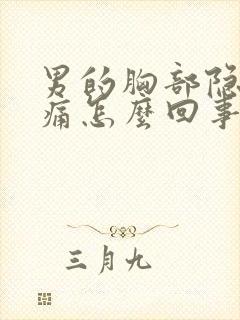 男的胸部隐
痛怎麼回事
三月九